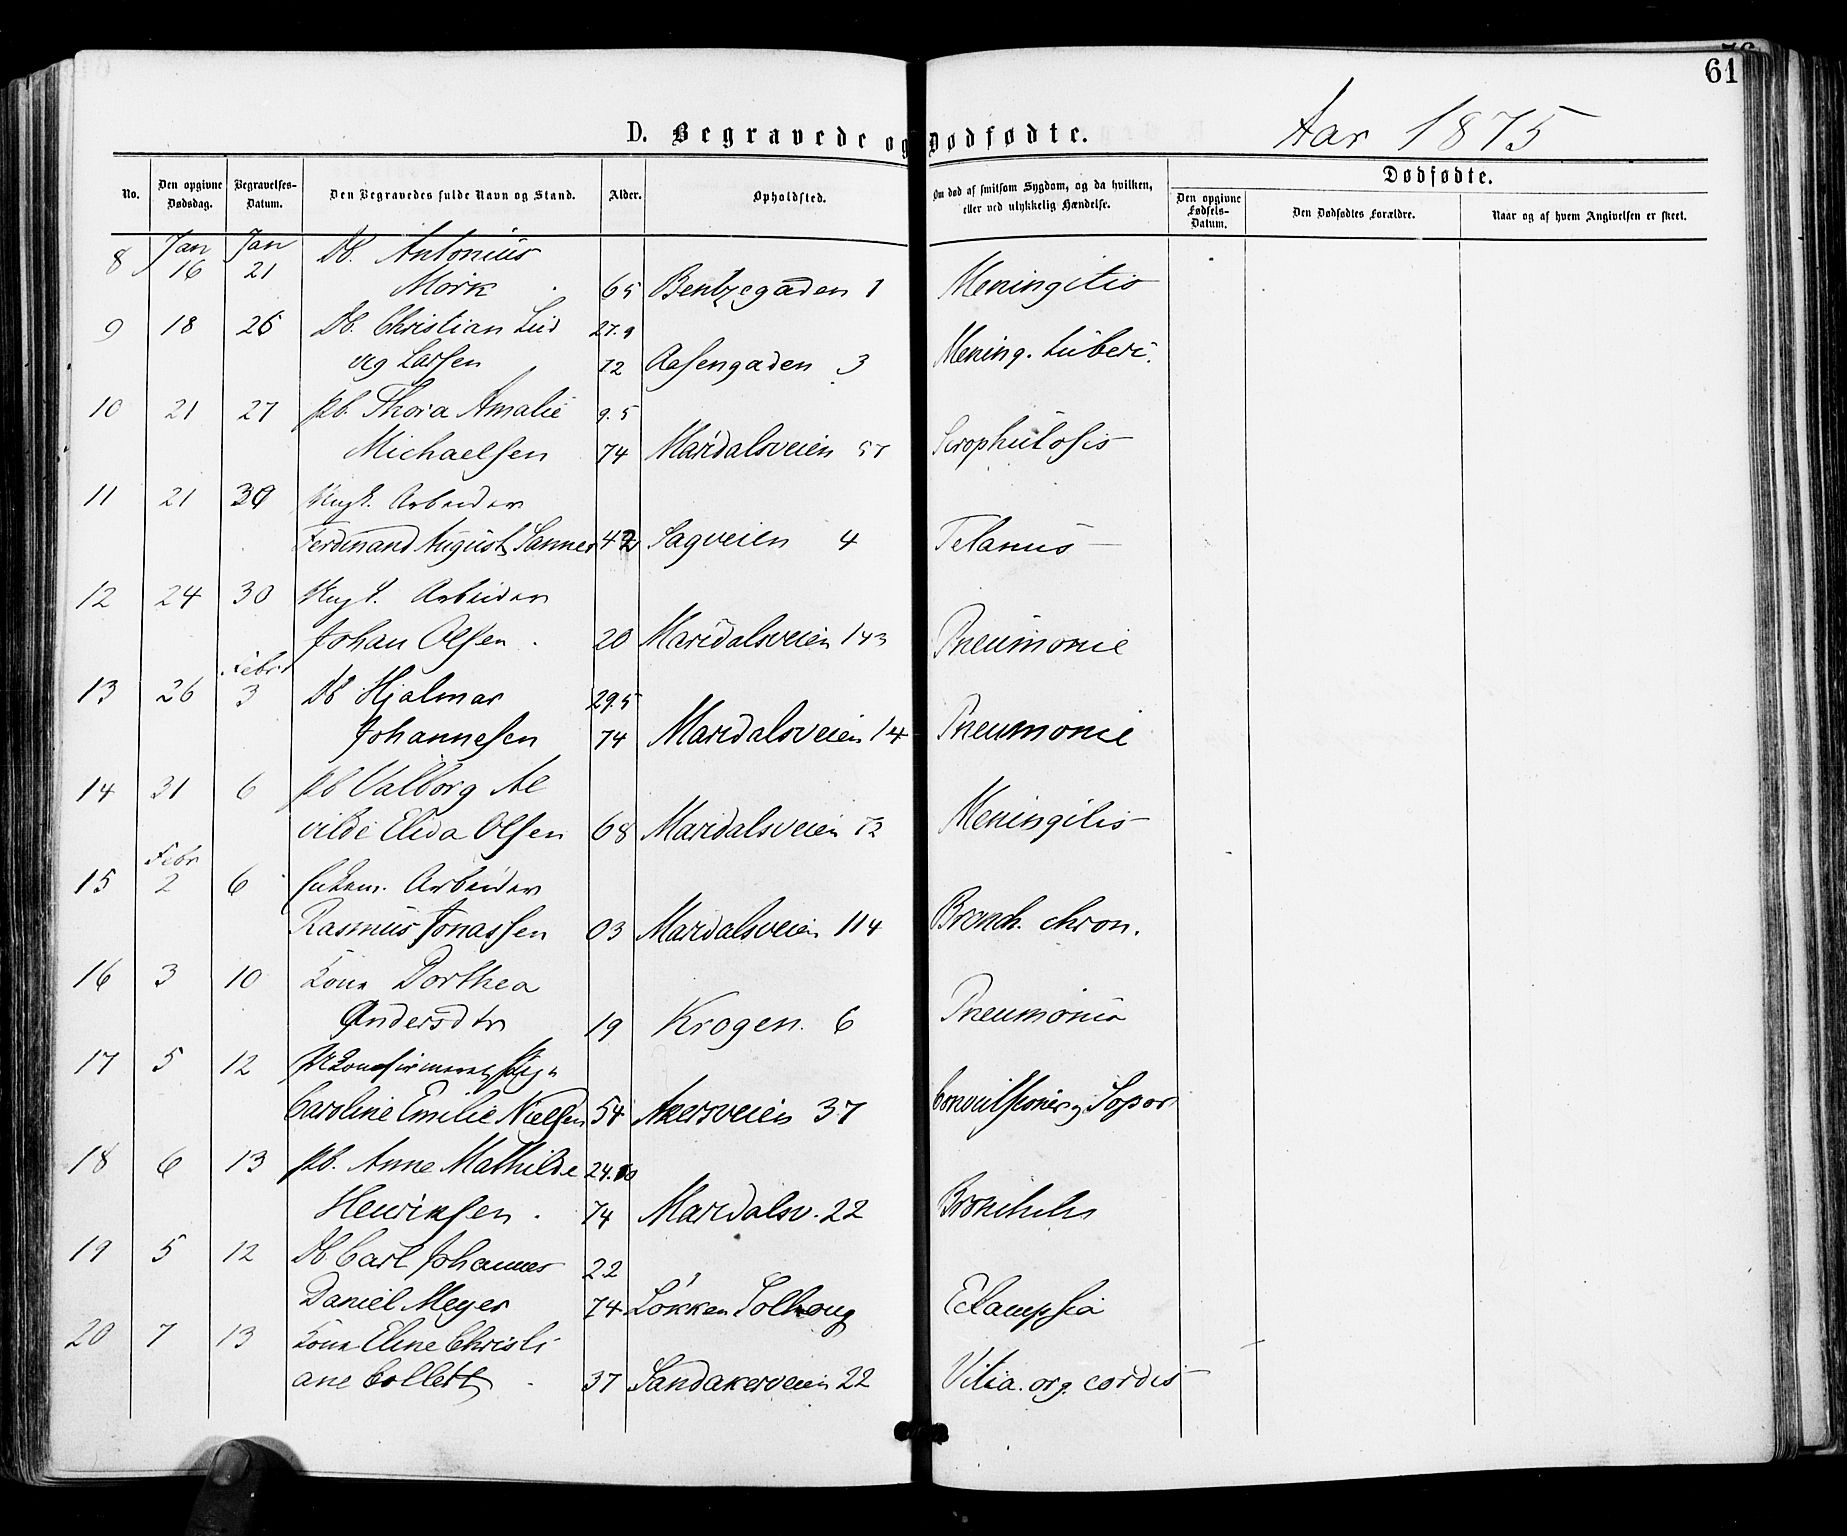 61
D. Begravede og Dødfødte.
Aar 1875
No.
Den opgivne Dødsdag.
Begravelses-Datum.
Den Begravedes fulde Navn og Stand.
Alder.
Opholdsted.
Om død af smitsom Sygdom, og da hvilken, eller ved ulykkelig Hændelse.
Dødfødte.
Den opgivne Fødsels-Datum.
Den Dødfødtes Forældre.
Naar og af hvem Angivelsen er skeet.
8 Jan 16 Jan 21 Db. Antonius
Mork 65 Bentzegaden 1 Meningitis
9 18 26 Db. Christian Lud 27.9
vig Larsen 72 Aasengaden 3 Mening. tuberc.
10 21 27 pb. Thora Amalie 9.5
Michaelsen 74 Maridalsveien 57 Scrophulosis
11 21 30 Ungk. Arbeider
Ferdinand August Sanner 42 Sagveien 4 Tetanus
12 24 30 Ungk. Arbeider
Johan Olsen. 20 Maridalsveien 143 Pneumonie
13 26 Febr 3 Db Hjalmar 29.5
Johannesen 74 Maridalsveien 14 Pneumonie
14 31 6 pb Valborg Al
vilde Elida Olsen 68 Maridalsveien 72 Meningitis
15 Febr 2 6 Enkem. Arbeider
Rasmus Jonassen 03 Maridalsveien 114 Bronch. chron.
16 3 10 Kone Dorthea
Andersdtr 19 Krogen. 6 Pneumonia
17 5 12 Ukonfirmeret Pige
Caroline Emilie Nielsen 54 Akersveien 37 Convulsioner og Sopor
18 6 13 pb. Anne Mathilde 24.10
Henriksen. 74 Maridalsv. 22 Bronchitis
19 5 12 Db Carl Johannes 22
Daniel Meyer 74 Løkken Solhoug Eclampsia
20 7 13 Kone Eline Christi
ane Collett 37 Sandakerveien 22 Vitia. org. cordis